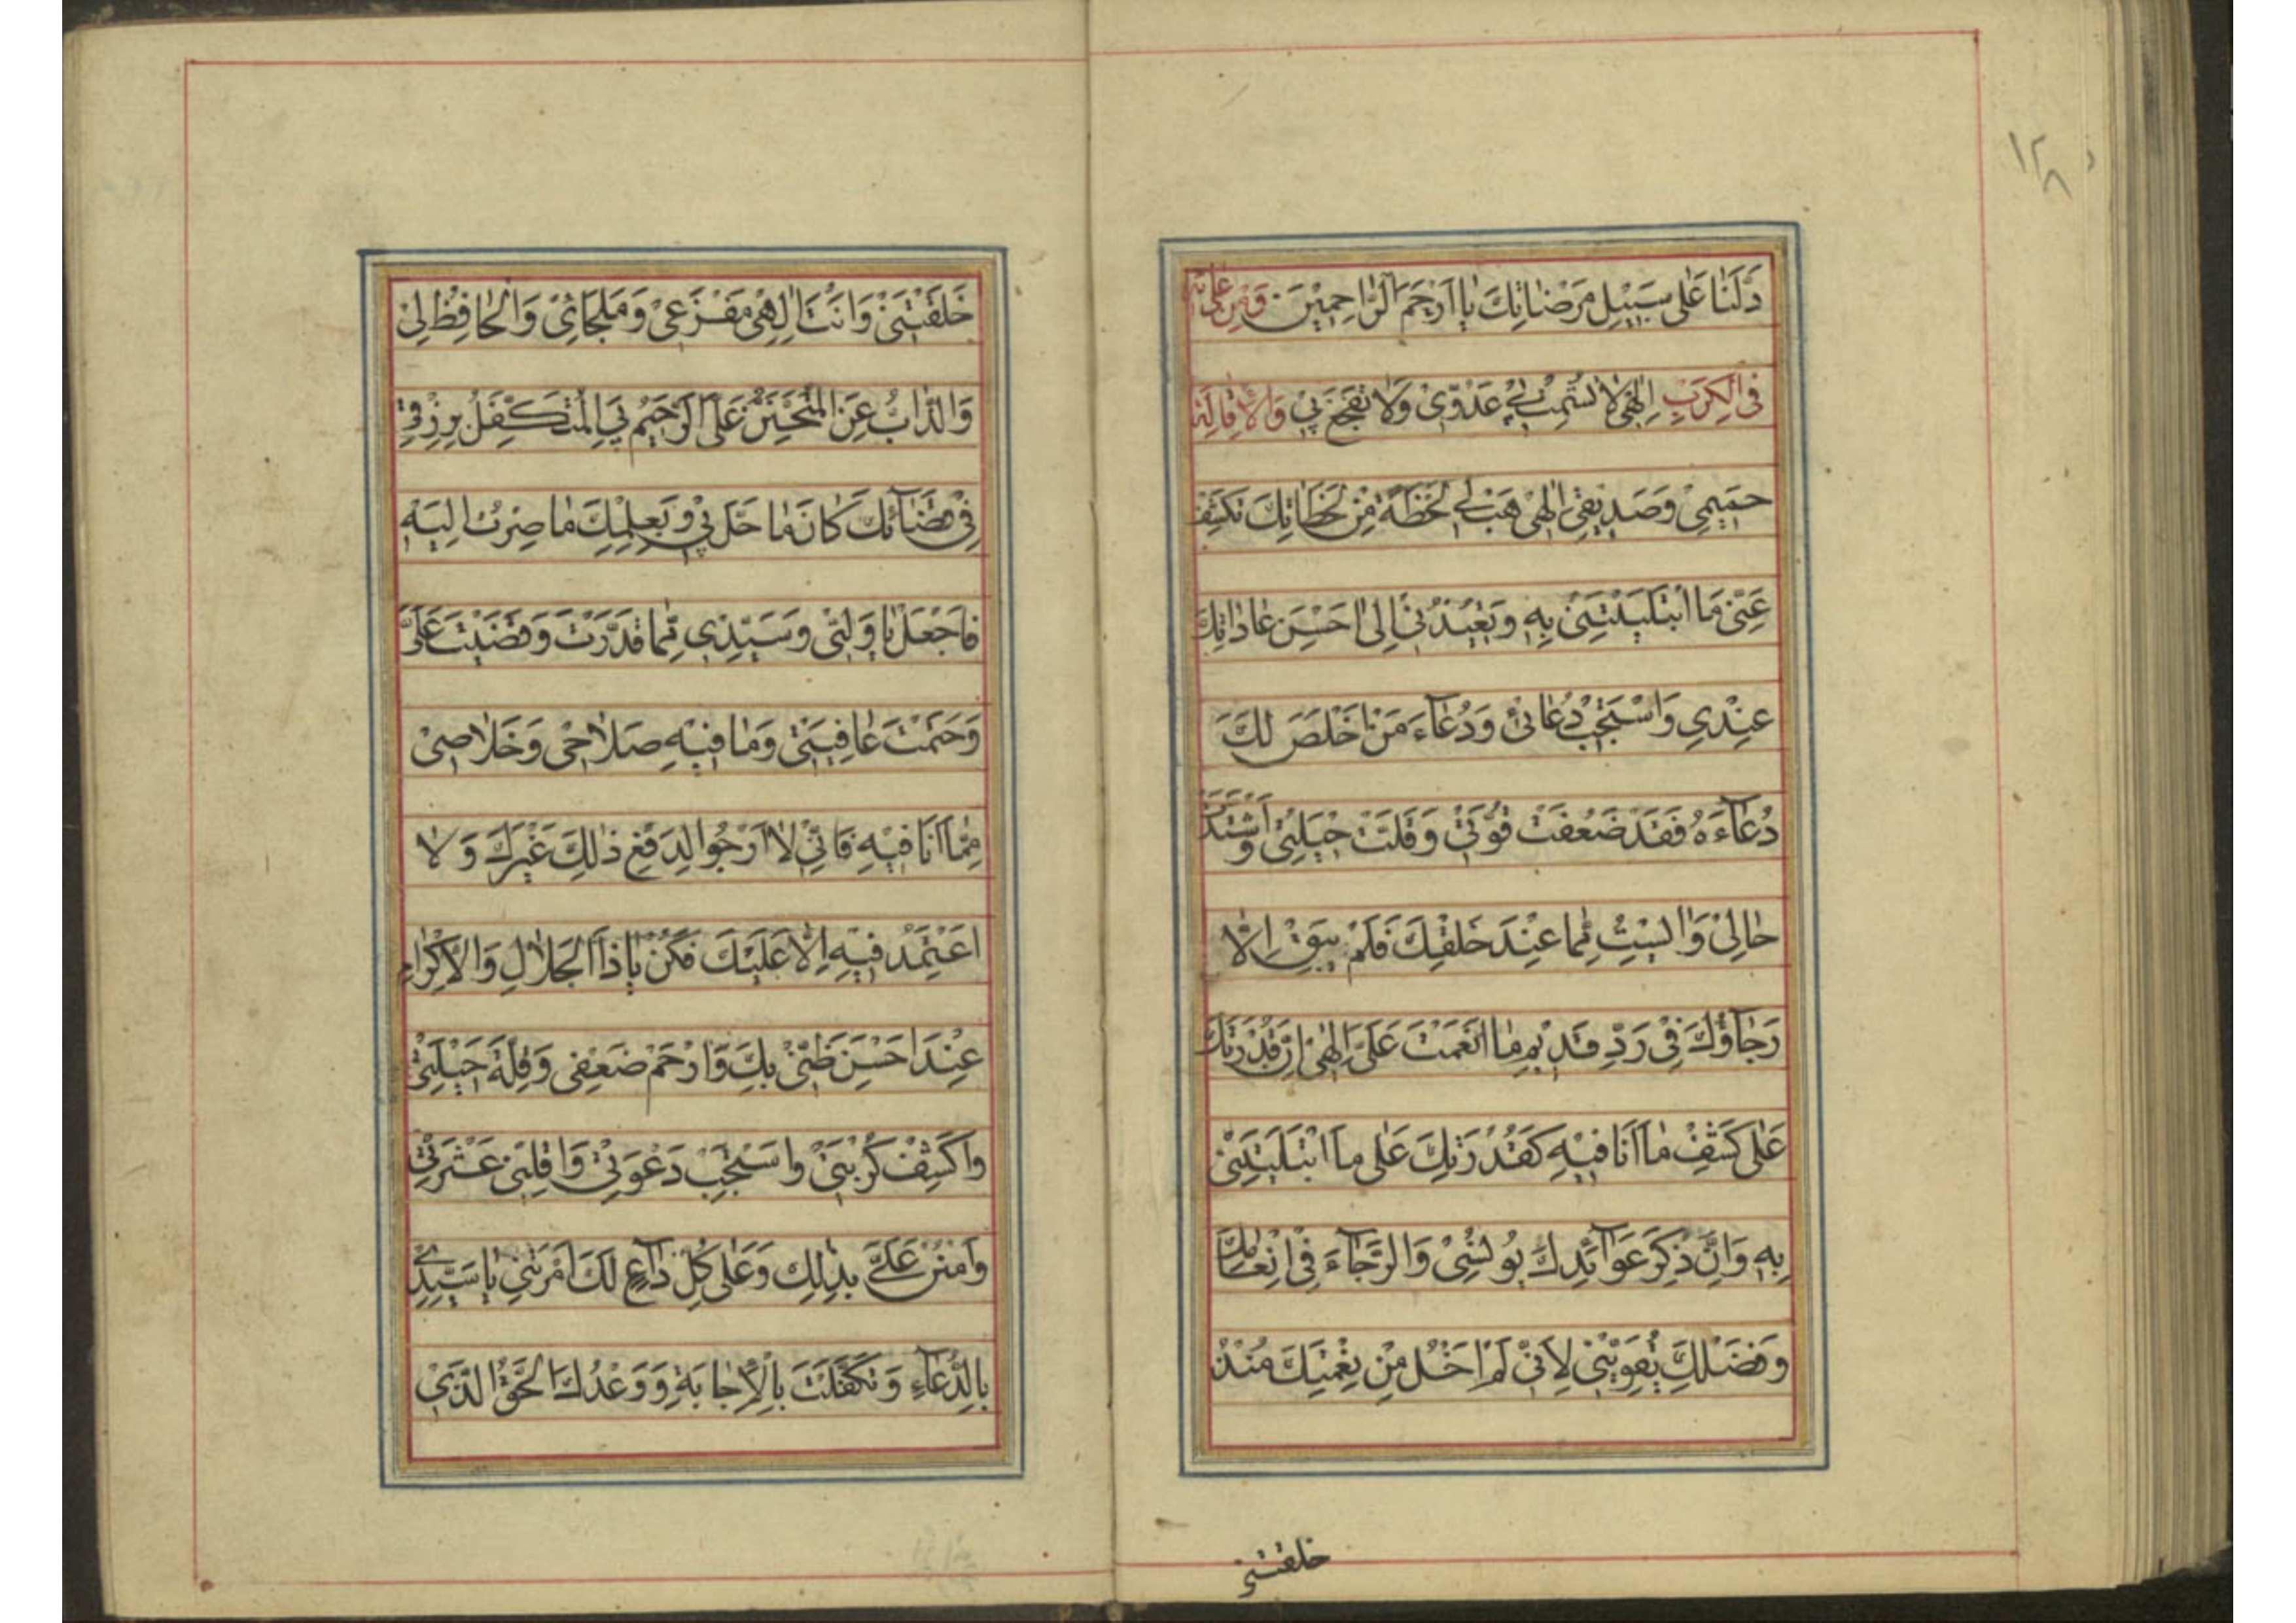 ١٢٨
دَلَنَا عَلٰی سَبِیْلِ مَرْضَاتِكَ یَا اَرْحَمَ الرَّاحِمِیْنَ وَمِنْ
فِی الْكَرْبِ اِلٰهِیْ لَا تُشْمِتْ بِیْ عَدُوِّیْ وَلَا تَفْجَعْ بِیْ وَالْاِقَالَةِ
حَمِیْمِیْ وَصَدِیْقِیْ اِلٰهِیْ هَبْ لِیْ لَحْظَةً مِنْ لَحَظَاتِكَ تَكْشِفْ
عَنِّیْ مَا ابْتَلَیْتَنِیْ بِهِ وَتُعِیْدُنِیْ اِلٰی اَحْسَنِ عَادَاتِكَ
عِنْدِیْ وَاسْتَجِبْ دُعَائِیْ وَدُعَآءَ مَنْ اَخْلَصَ لَكَ
دُعَآءَهُ فَقَدْ ضَعُفَتْ قُوَّتِیْ وَقَلَّتْ حِیْلَتِیْ وَاشْتَدَّ
حَالِیْ وَاٰیِسْتُ مِمَّا عِنْدَ خَلْقِكَ فَلَمْ یَبْقَ اِلَّا
رَجَآؤُكَ فِیْ رَدِّ قَدِیْمِ مَا اَنْعَمْتَ عَلَیَّ اِلٰهِیْ اِنَّ قُدْرَتَكَ
عَلٰی كَشْفِ مَا اَنَا فِیْهِ كَقُدْرَتِكَ عَلٰی مَا ابْتَلَیْتَنِیْ
بِهِ وَاِنَّ ذِكْرَ عَوَآئِدِكَ یُونِسُنِیْ وَالرَّجَآءَ فِیْ اِنْعَامِكَ
وَفَضْلِكَ یُقَوِّیْنِیْ لِاَنِّیْ لَمْ اَخْلُ مِنْ نِعْمَتِكَ مُنْذُ
خلقتنی
خَلَقْتَنِیْ وَاَنْتَ اِلٰهِیْ مَفْزَعِیْ وَمَلْجَائِیْ وَالْحَافِظُ لِیْ
وَالذَّابُّ عَنِّیْ الْمُتَحَنِّنُ عَلَیَّ الرَّحِیْمُ بِیَ الْمُتَكَفِّلُ بِرِزْقِیْ
فِیْ قَضَآئِكَ كَانَ مَا حَلَّ بِیْ وَبِعِلْمِكَ مَا صِرْتُ اِلَیْهِ
فَاجْعَلْ یَا وَلِیِّیْ وَسَیِّدِیْ فِیْمَا قَدَّرْتَ وَقَضَیْتَ عَلَیَّ
وَحَتَمْتَ عَافِیَتِیْ وَمَا فِیْهِ صَلَاحِیْ وَخَلَاصِیْ
مِمَّا اَنَا فِیْهِ فَاِنِّیْ لَا اَرْجُوا لِدَفْعِ ذٰلِكَ غَیْرَكَ وَلَا
اَعْتَمِدُ فِیْهِ اِلَّا عَلَیْكَ فَكُنْ یَا ذَا الْجَلَالِ وَالْاِكْرَامِ
عِنْدَ اَحْسَنِ ظَنِّیْ بِكَ وَارْحَمْ ضَعْفِیْ وَقِلَّةَ حِیْلَتِیْ
وَاكْشِفْ كُرْبَتِیْ وَاسْتَجِبْ دَعْوَتِیْ وَاَقِلْنِیْ عَثْرَتِیْ
وَامْنُنْ عَلَیَّ بِذٰلِكَ وَعَلٰی كُلِّ دَاعٍ لَكَ اَمَرْتَنِیْ یَا سَیِّدِیْ
بِالدُّعَآءِ وَتَكَفَّلْتَ بِالْاِجَابَةِ وَوَعْدُكَ الْحَقُّ الَّذِیْ